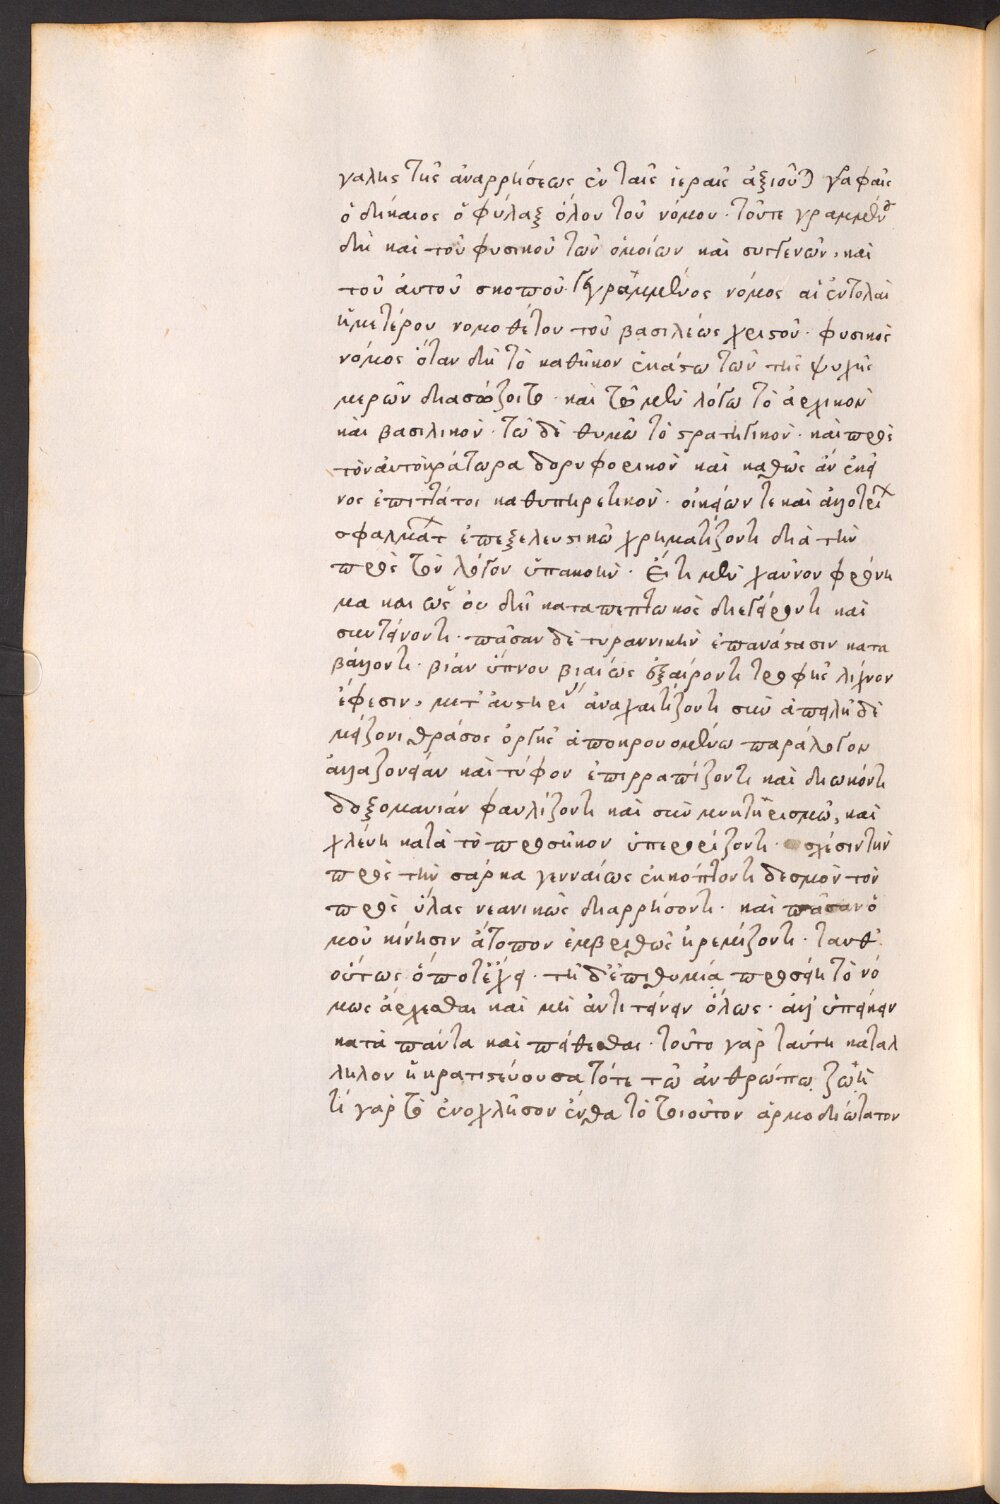 γαλης τῆς ἀναρρήσεως ἐν ταῖς ἱεραῖς ἀξιοῦται γραφαῖς
ὁ δίκαιος ὁ φύλαξ ὅλου τοῦ νόμου · τοῦτε γραμμένου
δὴ καὶ τοῦ φυσικοῦ τῶν ὁμοίων καὶ συγγενῶν, καὶ
τοῦ αὐτοῦ σκοποῦ γεγραμμένος νόμος αἱ ἐντολαὶ
ἡμετέρου νομοθέτου τοῦ βασιλέως χριστοῦ · φυσικὸς
νόμος ὅταν δὴ τὸ καθῆκον ἑκάστω τῶν τῆς ψυχῆς
μερῶν διασώζοιτο · καὶ τῶ μὲν λόγω τὸ ἀρχικὸν
καὶ βασιλικὸν · τῶ δὲ θυμῶ τὸ στρατηγικὸν · καὶ πρὸς
τὸν αὐτοκράτωρα δορυφορικὸν καὶ καθῶς ἂν ἐκεῖ
νος ἐπιτάττοι καθυπηρετικὸν · οἰκείων τε καὶ ἀλλοτρίων
σφαλμάτων ἐπεξελευστικῶ χρηματίζοντι διὰ τὴν
πρὸς τὸν λόγον ὑπακοὴν · ἔτι μὲν χαῦνον φρόνη
μα καὶ ὡς οὐ δεῖ καταπεπτωκὸς διεγείροντι καὶ
συντείνοντι · πᾶσαν δὲ τυραννικὴν ἐπανάστασιν κατα
βάλλοντι · βίαν ὕπνου βιαίως ἐξαίροντι τροφῆς λίχνον
ἔφεσιν, μετ' αὐστηροῦ ἀναχαιτίζοντι σὺν ἀπειλῆ δὲ
μείζονι θράσος ὀργῆς ἀποκρουομένω παράλογον
ἀλαζονείαν καὶ τύφον ἐπιρραπίζοντι καὶ διωκόντι
δοξομανίαν φαυλίζοντι καὶ σὺν μυκτηρισμῶ, καὶ
χλένη κατὰ τὸ προσῆκον ὑπερορίζοντι · σχέσιν τὴν
πρὸς τὴν σάρκα γενναίως ἐκκόπτοντι δεσμὸν τὸν
πρὸς ὕλας νεανικῶς διαρρήσοντι · καὶ πᾶσαν ὁ
μοῦ κίνησιν ἄτοπον ἐμβριθῶς ἠρεμίζοντι · ταῦθ'
οὕτως ὁπότε ἔχει · τῆ δ' ἐπιθυμία προσήκει τὸ νό
μως ἄρχεσθαι καὶ μὴ ἀντιτείνειν ὅλως · ἀλλ' ὑπείκειν
κατὰ πάντα καὶ πείθεσθαι · τοῦτο γὰρ ταύτη καταλ
ληλον ἢ κρατιστεύουσα τότε τῶ ἀνθρώπω ζωὴ
τί γὰρ τὸ ἐνοχλῆσον ἔνθα τὸ τοιοῦτον ἁρμοδιώτατον